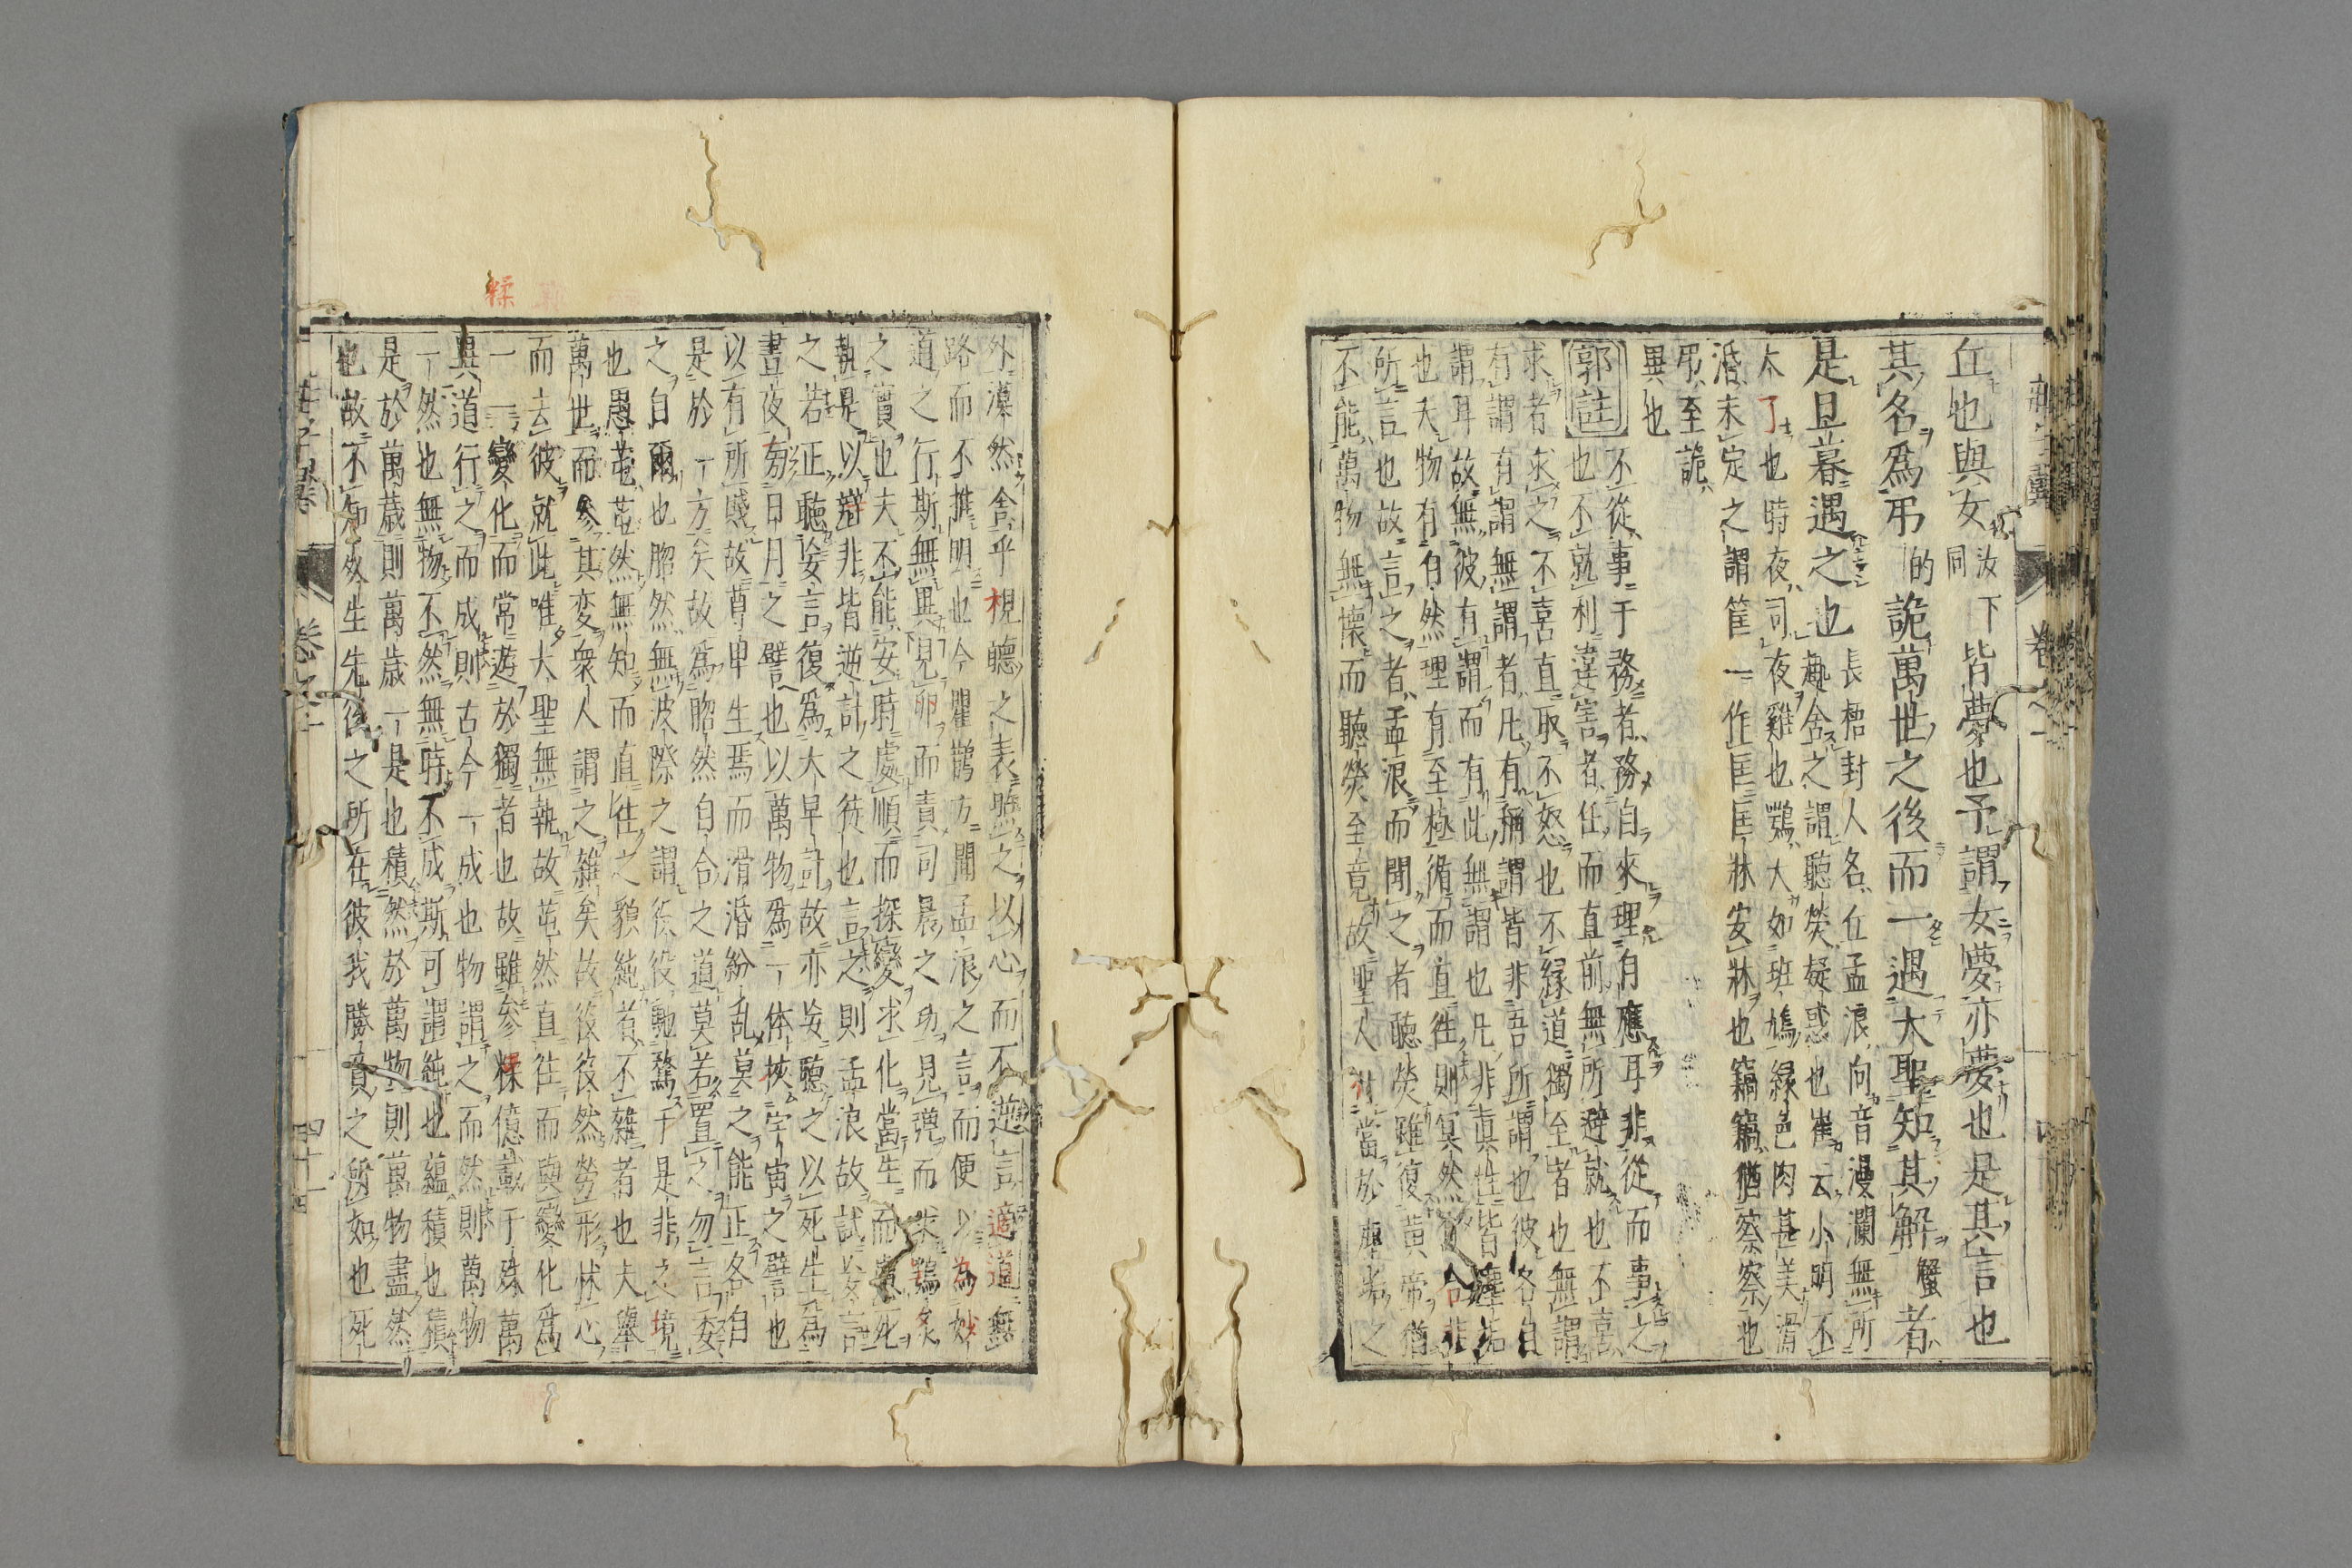 丘也與女汝下同皆夢也予謂女夢亦夢也是其言也
其名爲弔的詭萬世之後而一遇大聖知其解蟹者
是旦暮遇之也長梧封人名丘孟浪向音漫瀾無所
趣舍之謂聽熒疑惑也崔云小明不
大了也時夜司夜雞也鴞大如班鳩綠色肉甚美滑
涽未定之謂筐一作匡匡牀安牀也竊竊猶察察也
弔至詭
異也
郭註不從事于務者務自來理自應耳非從而事之
也不就利違害者任而直前無所避就也不喜
求者求之不喜直取不怒也不緣道獨至者也無謂
有謂有謂無謂者凡有稱謂皆非吾所謂也彼各自
謂耳故無彼有謂而有此無謂也凡非真性皆塵垢
也夫物有自然理有至極循而直往則冥然自合非
所言也故言之者孟浪而聞之者聽熒雖復黃帝猶
不能萬物無懷而聽熒至竟故聖人付當於塵垢之
外漠然舍乎視聽之表照之以心而不逆言適道無
路而不推明也今瞿鵲方聞孟浪之言而便以為妙
道之行斯無異見卵而責司晨之功見彈而求鴞炙
之實也夫不能安時處順而探變求化當生而慮死
執是以辯非皆逆計之徒也言之則孟浪故試妄言
之若正聽妄言復爲大早計故亦妄聽之以死生爲
晝夜旁日月之譬也以萬物爲一体挾宇宙之譬也
以有所賤故尊卑生焉而滑涽紛乱莫之能正各自
是於一方矣故爲脗然自合之道莫若置之勿言委
之自爾也脗然無波際之謂役役馳騖于是非之境
也愚芚芚然無知而直往之貌純者不雜者也夫舉
萬世而參其変衆人謂之雜矣故役役然勞形怵心
而去彼就此唯大聖無執故芚然直往而與變化爲
一一變化而常遊於獨者也故雖參糅億載千殊萬
異道行之而成則古今一成也物謂之而然則萬物
一然也無物不然無時不成斯可謂純也蘊積也積
是於萬歲則萬歲一是也積然於萬物則萬物盡然
也故不知死生先後之所在彼我勝負之所如也死
莊子翼
卷之一
四十一
糅